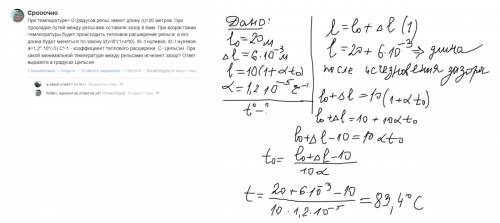 Срооочно
При температуре= 0 градусов рельс имеет длину (l)=20 метров. При
прокладке путей между рельсами оставили зазор в 6мм. При возрастании
температуры будет происходить тепловое расширение рельса, и его
длина будет меняться по закону l(t)=l0*(1+a*t0). l0- l нулевое, t0- t нулевое,
a=1.2* 10^(-5) C^-1 - коэффициент теплового расширения. C- цельсии. При
какой минимальной температуре между рельсами исчезнет зазор? Ответ
выразите в градусах Цельсия
а какой ответ?
вариантов ответов нет
Дано:
l₀=20м
Δl=6·10⁻³м
l=10(1+αt₀)
α=1,2·10⁻⁵
t°-?
l=l₀+Δl (1)
l=20+6·10⁻³ ⇒ длина
после исчезновения зазора
l₀+Δl=10(1+αt₀)
l₀+Δl=10+10αt₀
l₀+Δl-10=10αt₀
t₀=(l₀+Δl-10)/(10α)
t=(20+6·10⁻³-10)/(10·1,2·10⁻⁵)=83,4°C